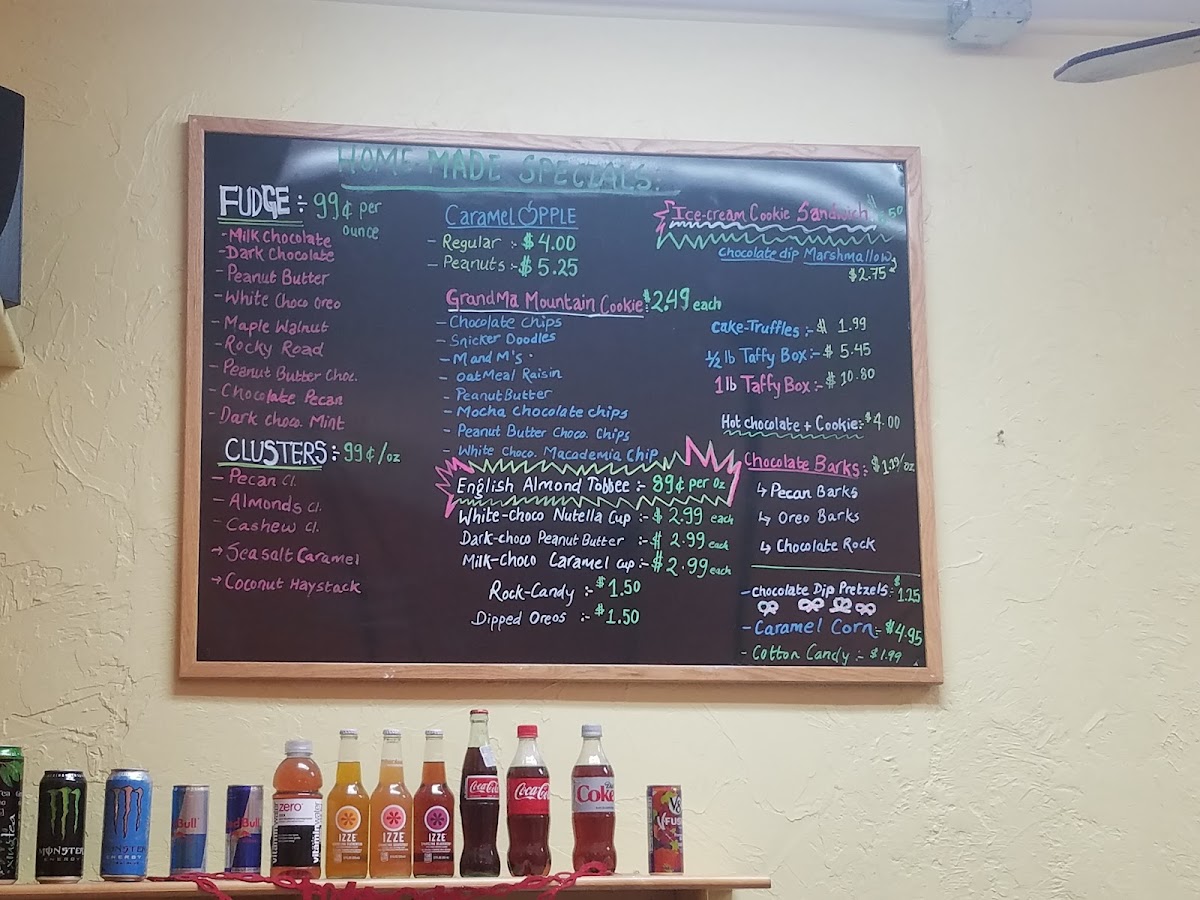 HOME-MADE SPECIALS:
FUDGE :- 99¢ per ounce
- Milk Chocolate
- Dark Chocolate
- Peanut Butter
- White Choco Oreo
- Maple Walnut
- Rocky Road
- Peanut Butter Choc.
- Chocolate Pecan
- Dark Choco. Mint
CLUSTERS :- 99¢/oz
- Pecan Cl.
- Almonds Cl.
- Cashew Cl.
→ Sea salt Caramel
→ Coconut Haystack
Caramel APPLE
- Regular :- $4.00
- Peanuts :- $5.25
GrandMa Mountain Cookie $2.49 each
- Chocolate Chips
- Snicker Doodles
- M and M's
- OatMeal Raisin
- Peanut Butter
- Mocha Chocolate chips
- Peanut Butter Choco. Chips
- White Choco. Macademia Chip
English Almond Toffee :- 89¢ per Oz
White-choco Nutella Cup :- $2.99 each
Dark-choco Peanut Butter :- $2.99 each
Milk-Choco Caramel cup :- $2.99 each
Rock-Candy :- $1.50
Dipped Oreos :- $1.50
Ice-cream Cookie Sandwich
Chocolate dip Marshmallow
$2.75
Cake-Truffles :- $1.99
½ lb Taffy Box :- $5.45
1 lb Taffy Box :- $10.80
Hot chocolate + Cookie :- $4.00
Chocolate Barks :- $1.19/oz
↳ Pecan Barks
↳ Oreo Barks
↳ Chocolate Rock
- Chocolate Dip Pretzels :- $1.25
- Caramel Corn :- $4.95
- Cotton Candy :- $1.99
MONSTER
ENERGY
MONSTER
ENERGY
Bull
Red Bull
zero
vitaminwater
IZZE
IZZE
IZZE
Coca-Cola
Coca-Cola
Diet
Coke
V8
FUSION